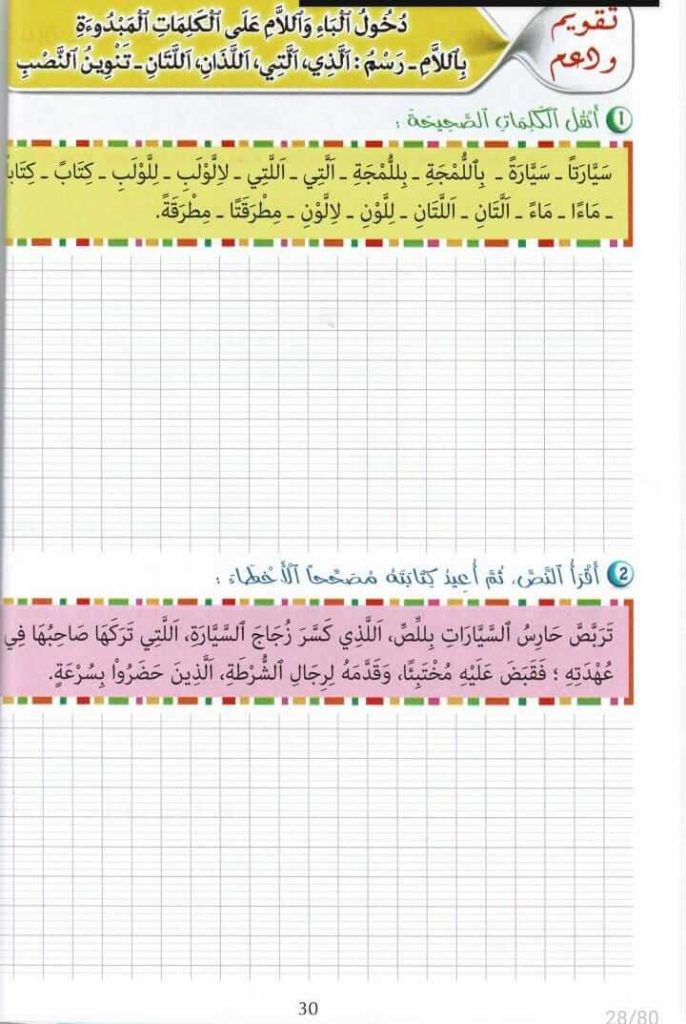 تقويم
ودعم
دُخُولُ ٱلْبَاءِ وَٱللاَّمِ عَلَى ٱلْكَلِمَاتِ ٱلْمَبْدُوءَةِ
بِٱللاَّمِ - رَسْمُ : ٱلَّذِي، ٱلَّتِي، ٱللَّذَانِ، ٱللَّتَانِ - تَنْوِينُ ٱلنَّصْبِ
1 أَنْقُلُ ٱلْكَلِمَاتِ ٱلصَّحِيحَةَ :
سَيَّارَتاً - سَيَّارَةً - بِٱللُّمْجَةِ - بِللُّمْجَةِ - ٱلَّتِي - ٱللَّتِي - لِالَّوْلَبِ - لِلَّوْلَبِ - كِتَابً - كِتَاباً
- مَاءًا - مَاءً - ٱلَّتَانِ - ٱللَّتَانِ - لِلَّوْنِ - لِالَّوْنِ - مِطْرَقَتًا - مِطْرَقَةً.
2 أَقْرَأُ ٱلنَّصَّ، ثُمَّ أُعِيدُ كِتَابَتَهُ مُصَحِّحاً ٱلْأَخْطَاءَ :
تَرَبَّصَ حَارِسُ ٱلسَّيَّارَاتِ بِللِّصِّ، ٱللَّذِي كَسَّرَ زُجَاجَ ٱلسَّيَّارَةِ، ٱللَّتِي تَرَكَهَا صَاحِبُهَا فِي
عُهْدَتِهِ ؛ فَقَبَضَ عَلَيْهِ مُخْتَبِئًا، وَقَدَّمَهُ لِرِجَالِ ٱلشُّرْطَةِ، ٱلَّذِينَ حَضَرُواْ بِسُرْعَةٍ.
30
28/80